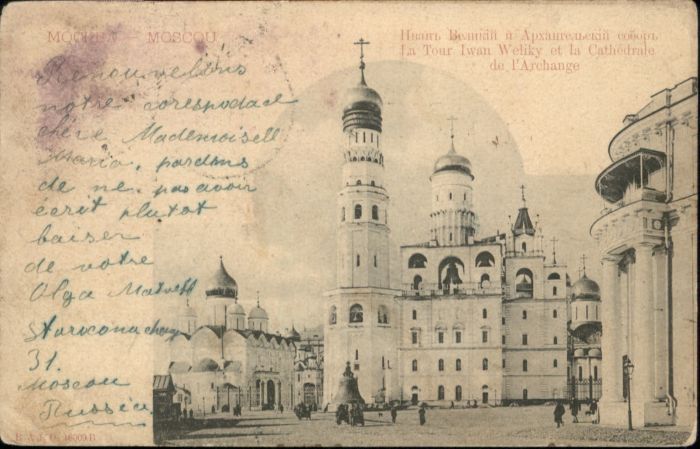 МОСКВА MOSCOU
Иванъ Великій и Архангельскій соборъ
La Tour Iwan Weliky et la Cathédrale
de l'Archange
Renouvelons
notre corespodace
chère Mademoisell
Maria, pardons
de ne pas avoir
écrit plutot
baiser
de votre
Olga Matveff
31.
Moscou
Russie